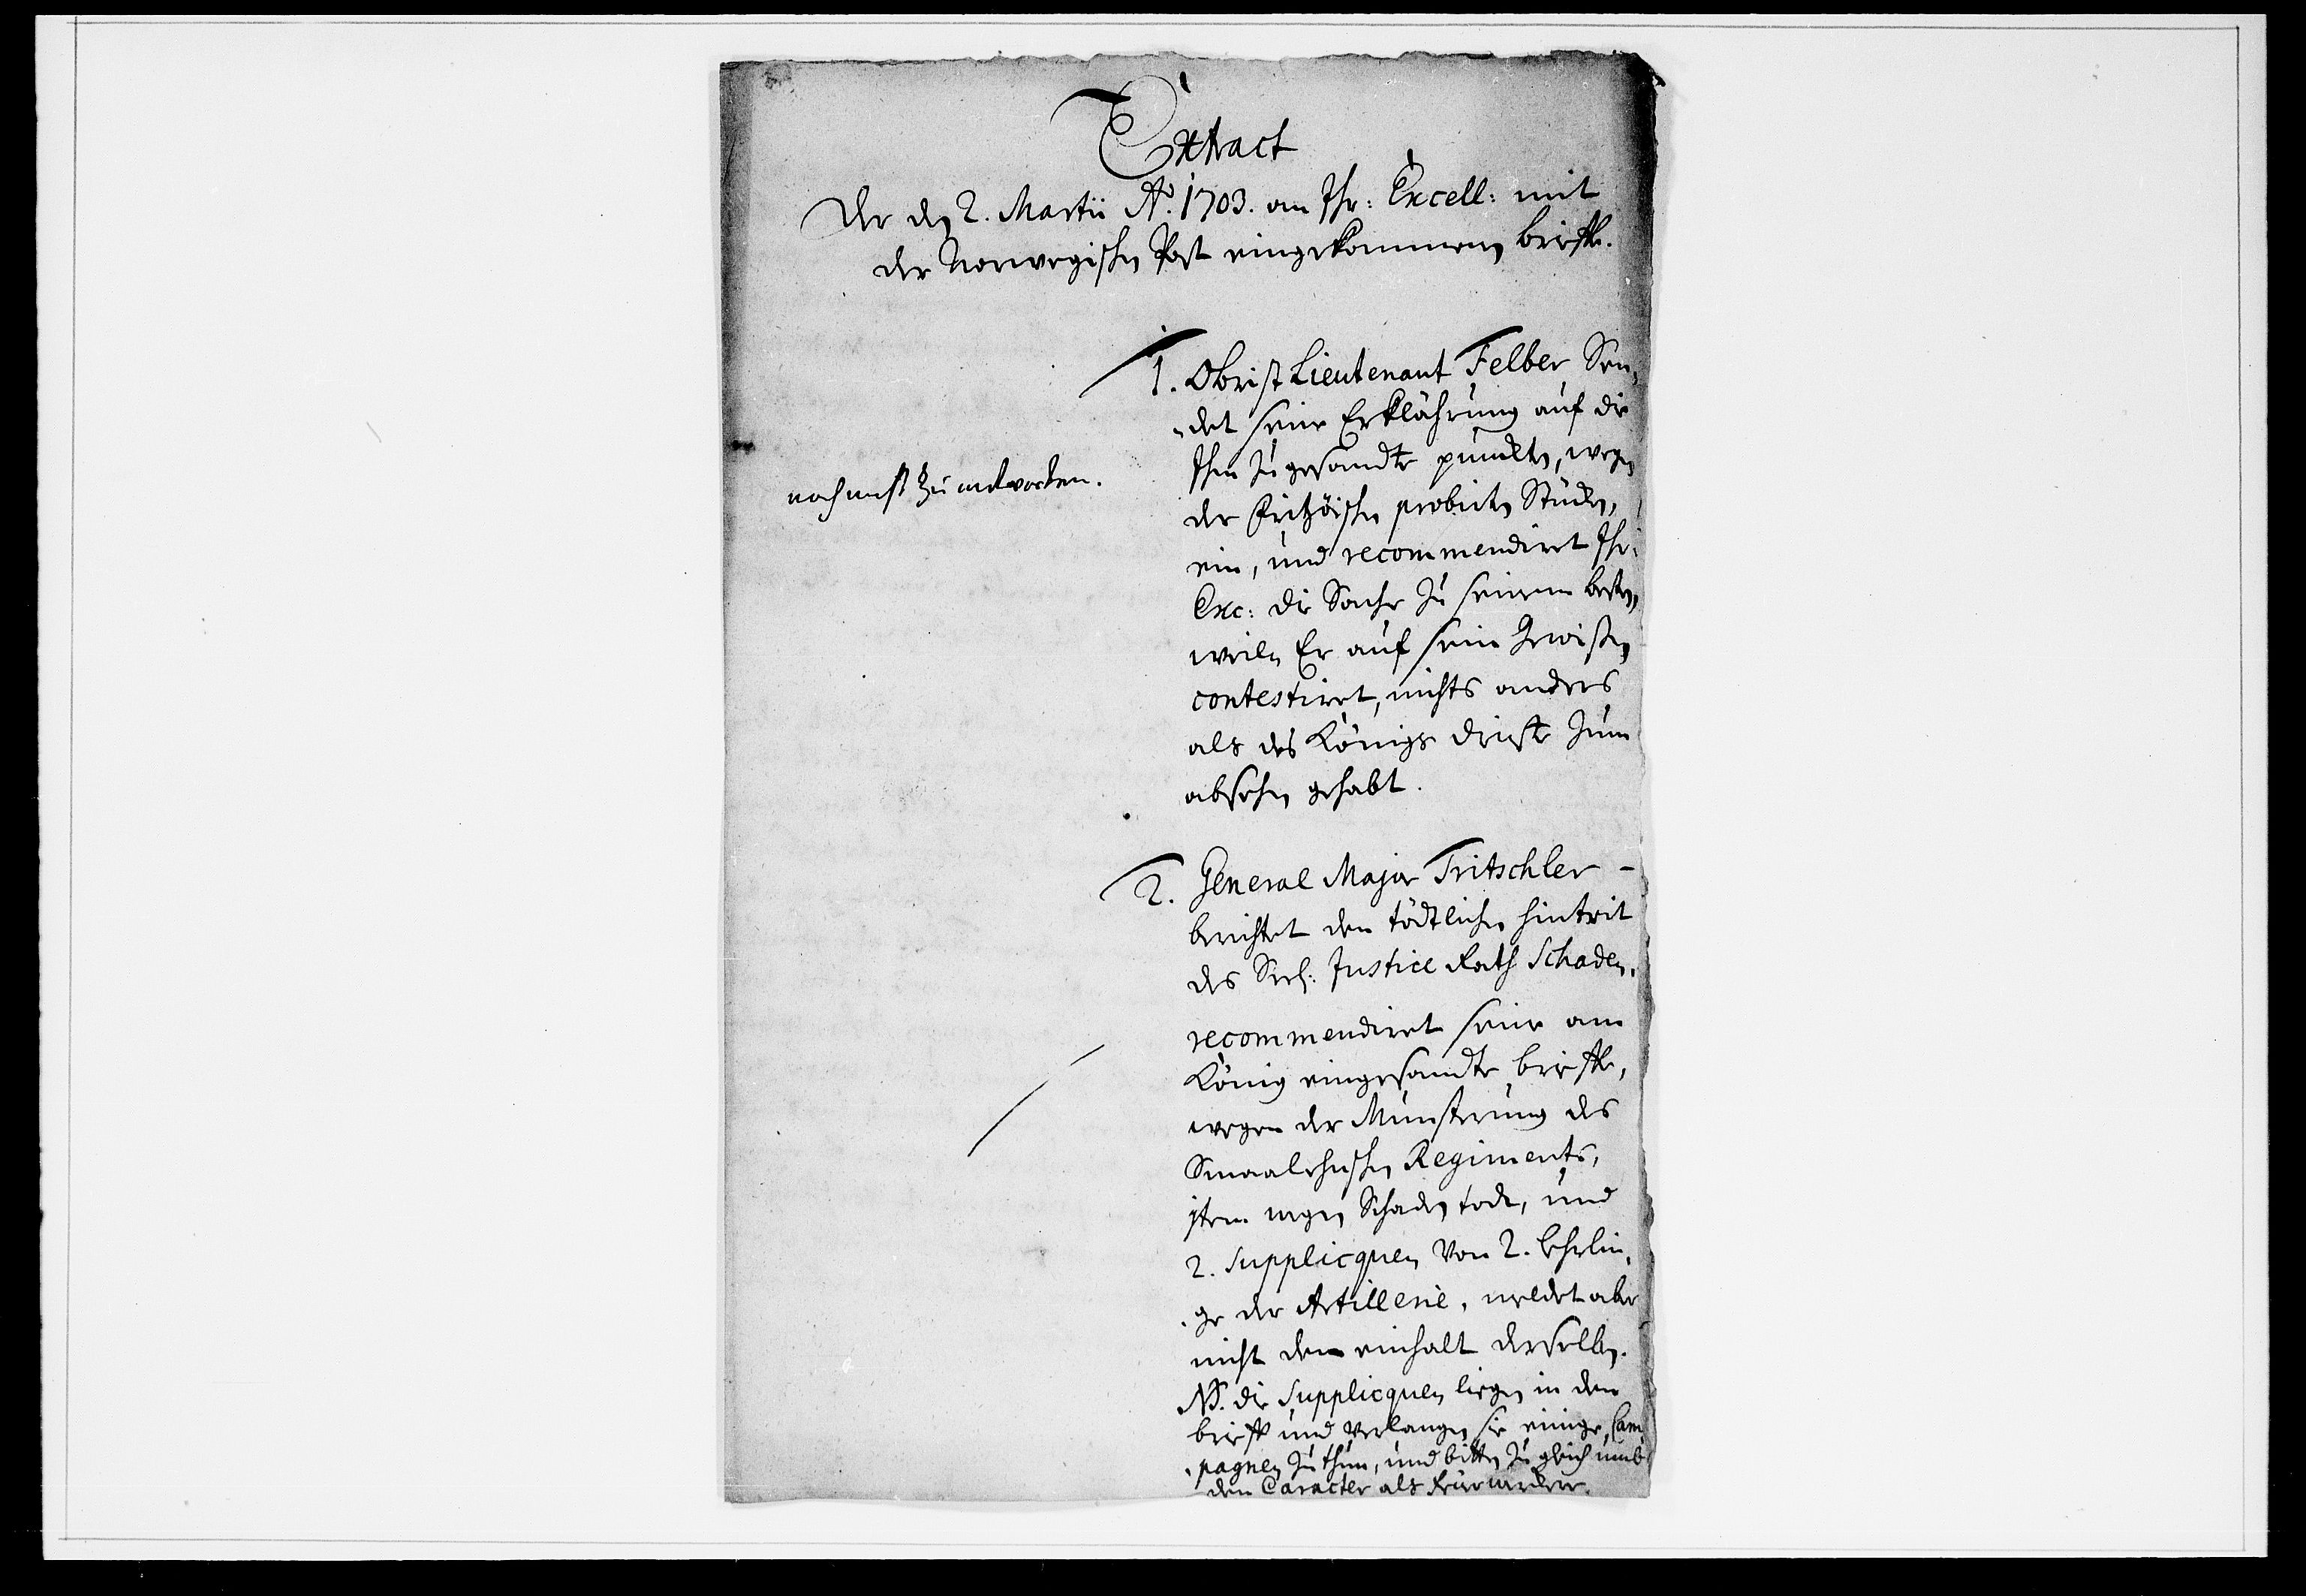 Extract
Der den 2. Martii Ao. 1703. an Ihr: Excell: mit
der Norwegischen Post eingekommenen brieffe.
1. Obrist Lieutenant Felber Sen,
„det seine Erklährung auf die
Ihm zu gesandte puncten, wegen
der Fritzöischen probirten Stücken,
nach nicht zu andworten.
ein, und recommendiret Ihr:
Exc: die Sache zu seinem besten,
weiln Er auf sein Gewißen
contestiret, nichts anders
als des Königs dienste zum
absehen gehabt.
2. General Major Tritschler -
berichtet den tödtlichen hintrit
des Seel: Justice Rath Schaden.
recommendiret seine am
König eingesandte brieffe,
wegen der Munsterung des
Smaalehnschen Regiments,
item wegen Schaden todt, und
2. Supplicquen von 2. Lehrlin,
„ge der Artillerie, meldet aber
nicht den einhalt derselben.
NB. die Supplicquen liegen in dem
brieff und verlangen sie einige Cam,
„pagnen zu thun, und bitten zu gleich umb
den Caracter als